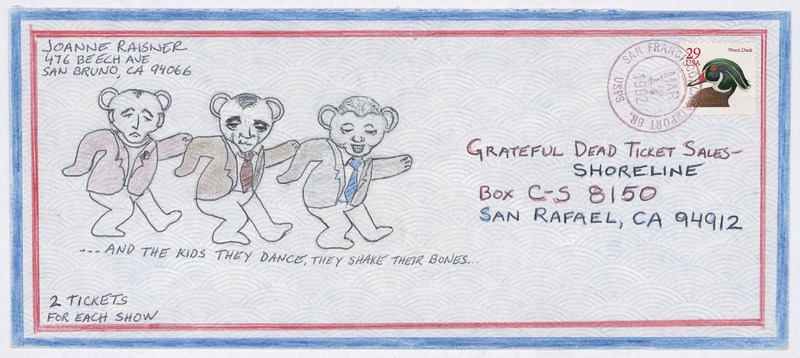 JOANNE RAISNER
476 BEECH AVE
SAN BRUNO, CA 94066
29
USA
Wood Duck
SAN FRANCISCO
MAR
16
1992
USPS
GRATEFUL DEAD TICKET SALES-
SHORELINE
BOX C-S 8150
SAN RAFAEL, CA 94912
...AND THE KIDS THEY DANCE, THEY SHAKE THEIR BONES...
2 TICKETS
FOR EACH SHOW